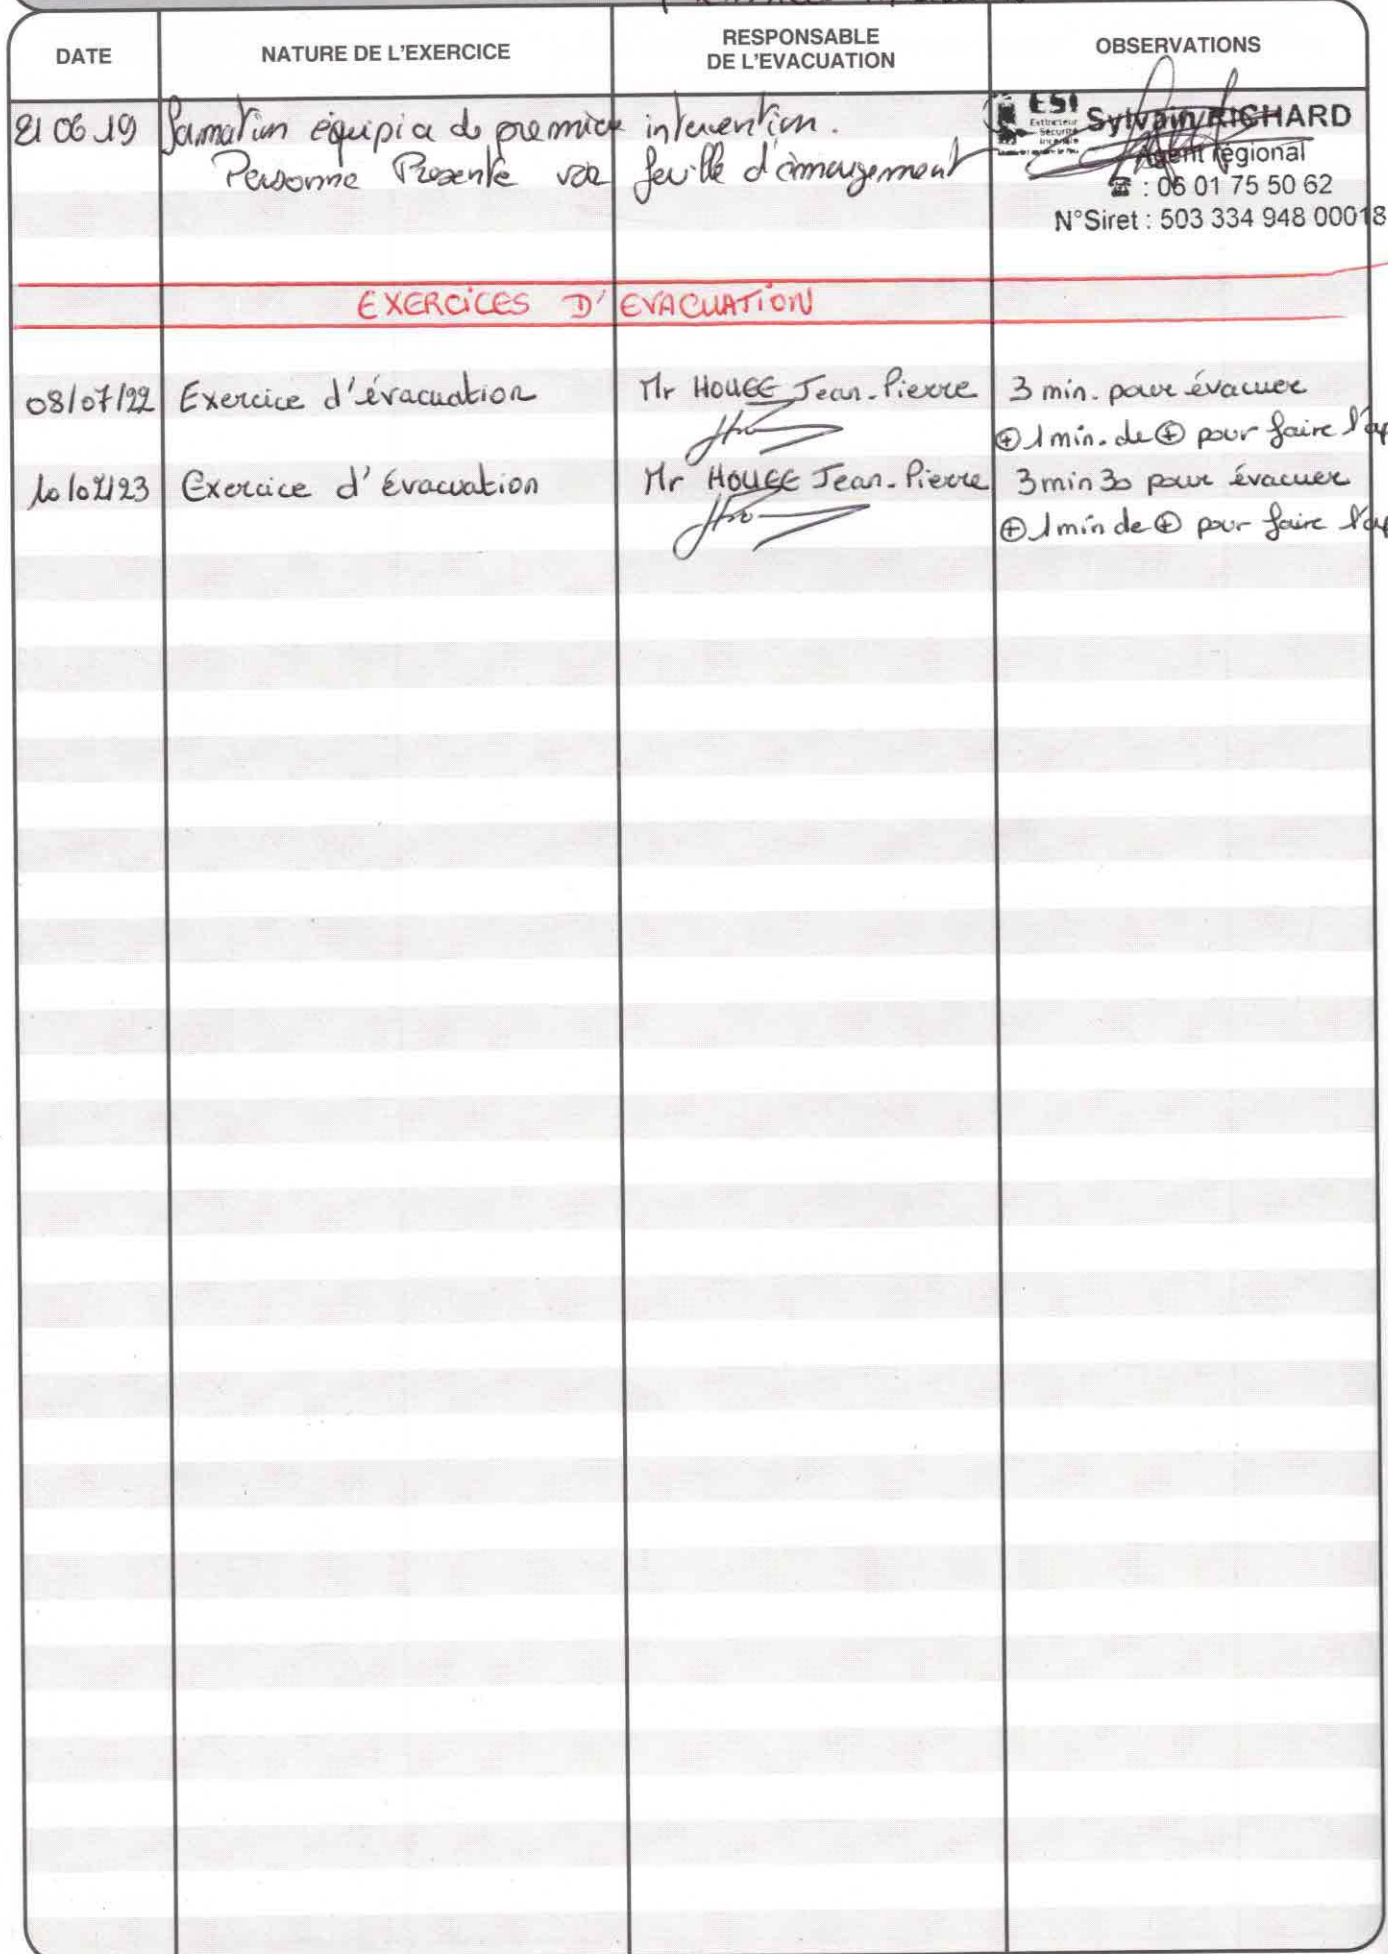 DATE
NATURE DE L'EXERCICE
RESPONSABLE
DE L'EVACUATION
OBSERVATIONS
21 06 19 formation équipier de premier intervention.
Personne Presente voir feuille d'émargement
ESI
Extincteur
Sécurité
Incendie
Sylvain RICHARD
Agent régional
☎ : 06 01 75 50 62
N°Siret : 503 334 948 00018
EXERCICES D'EVACUATION
08/07/22 Exercice d'évacuation Mr HOUEE Jean-Pierre 3 min. pour évacuer
⊕ 1 min. de ⊕ pour faire l'ap
Exercice d'évacuation Mr HOUEE Jean-Pierre 3 min 30 pour évacuer
⊕ 1 min de ⊕ pour faire l'ap